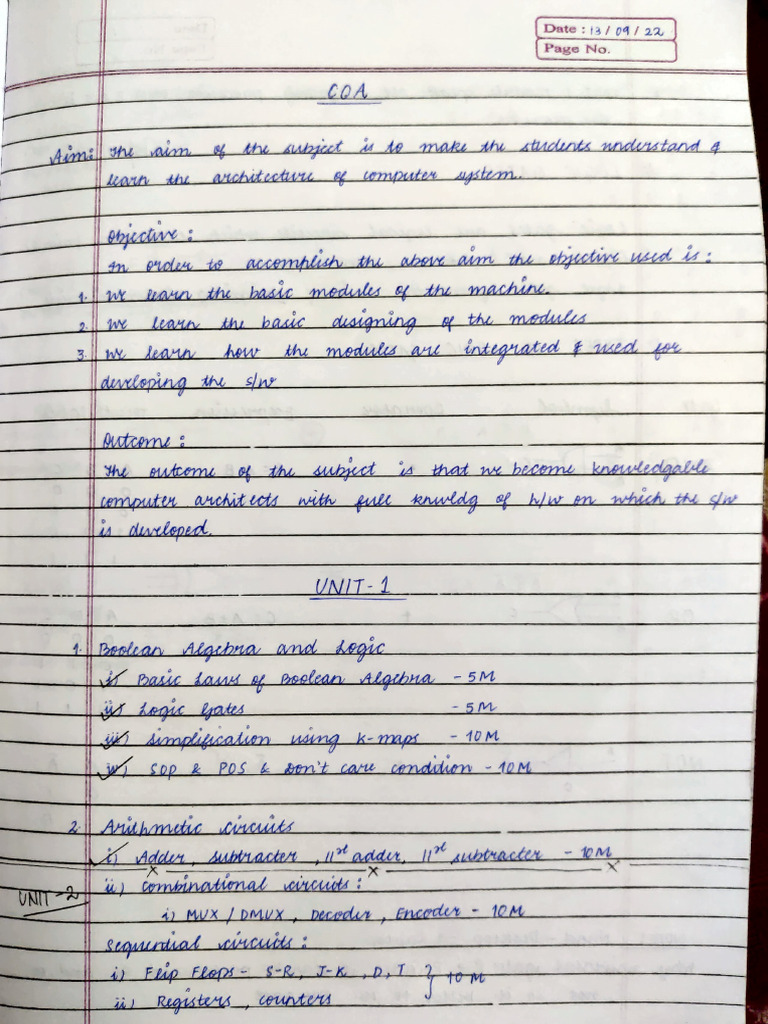 Date : 13 / 09 / 22
Page No.
COA
Aim: The aim of the subject is to make the students understand &
learn the architecture of computer system.
Objective :
In order to accomplish the above aim the objective used is :
1. We learn the basic modules of the machine.
2. We learn the basic designing of the modules
3. We learn how the modules are integrated & used for
developing the s/w
Outcome :
The outcome of the subject is that we become knowledgable
computer architects with full knwldg of h/w on which the s/w
is developed.
UNIT-1
1. Boolean Algebra and Logic
i) Basic Laws of Boolean Algebra - 5M
ii) Logic Gates - 5M
iii) Simplification using K-maps - 10M
iv) SOP & POS & Don't care condition - 10M
2. Arithmetic circuits
i) Adder, subtracter, 11rl adder, 11rl subtracter - 10M
UNIT-2 ii) Combinational circuits :
i) MUX / DMUX, Decoder, Encoder - 10M
Sequential circuits :
i) Flip Flops - S-R, J-K, D, T } 10M
ii) Registers, counters